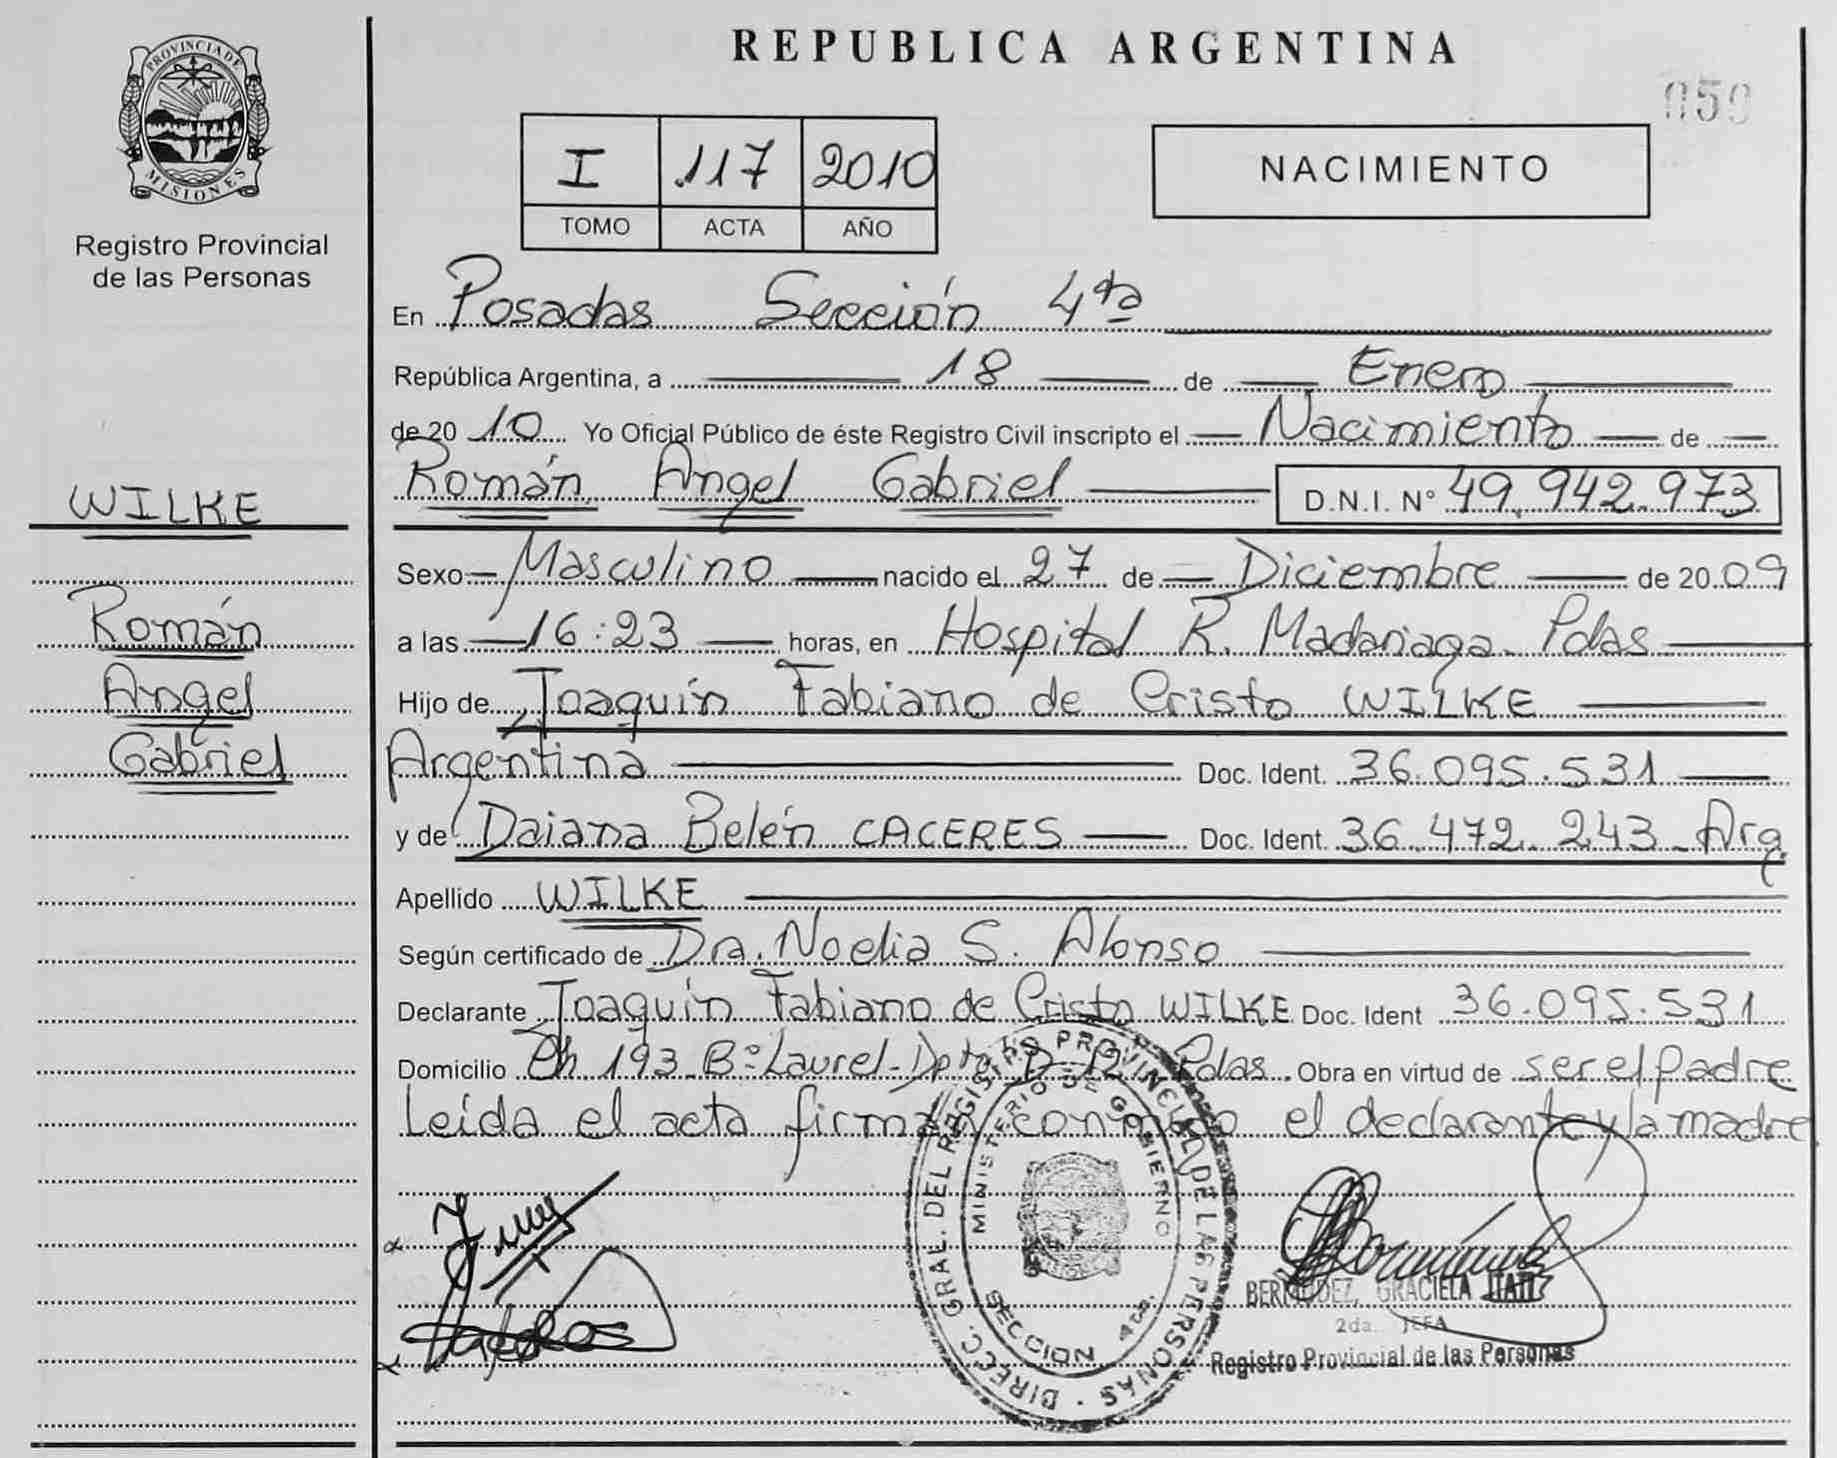 REPUBLICA ARGENTINA
PROVINCIA DE MISIONES
Registro Provincial
de las Personas
050
I 117 2010
TOMO ACTA AÑO
NACIMIENTO
En Posadas Sección 4ta
República Argentina, a 18 de Enero
de 20 10 Yo Oficial Público de éste Registro Civil inscripto el Nacimiento de
Román Angel Gabriel D.N.I. N° 49.942.973
WILKE
Román
Angel
Gabriel
Sexo Masculino nacido el 27 de Diciembre de 20 09
a las 16:23 horas, en Hospital R. Madariaga - Pdas
Hijo de Joaquín Fabiano de Cristo WILKE
Argentina Doc. Ident. 36.095.531
y de Daiana Belén CACERES Doc. Ident. 36.472.243 - Arg
Apellido WILKE
Según certificado de Dra. Noelia S. Alonso
Declarante Joaquín Fabiano de Cristo WILKE Doc. Ident 36.095.531
Domicilio Ch 193 B° Laurel - Pdas. Obra en virtud de ser el padre
Leída el acta firman conmigo el declarante y la madre
DIRECC. GRAL. DEL REGISTRO PROVINCIAL DE LAS PERSONAS
MINISTERIO DE GOBIERNO
SECCION 4ta.
BERMUDEZ, GRACIELA ITATI
2da. JEFA
Registro Provincial de las Personas